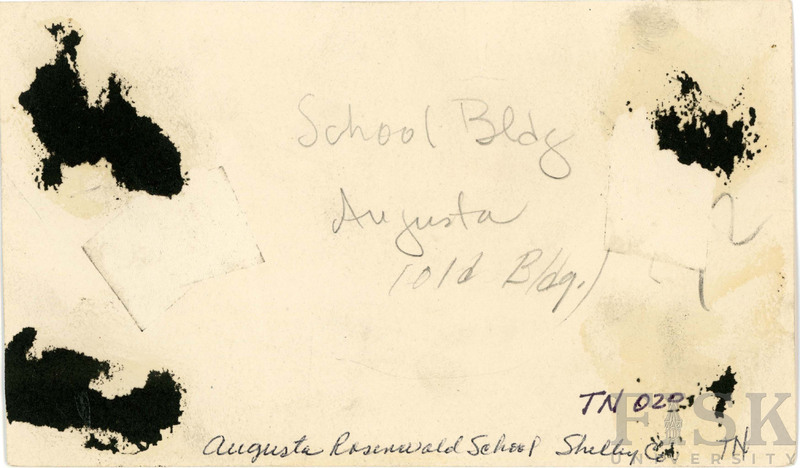 School Bldg
Augusta
(old Bldg.)
2
TN 020
Augusta Rosenwald School Shelby Co. TN
FISK
UNIVERSITY